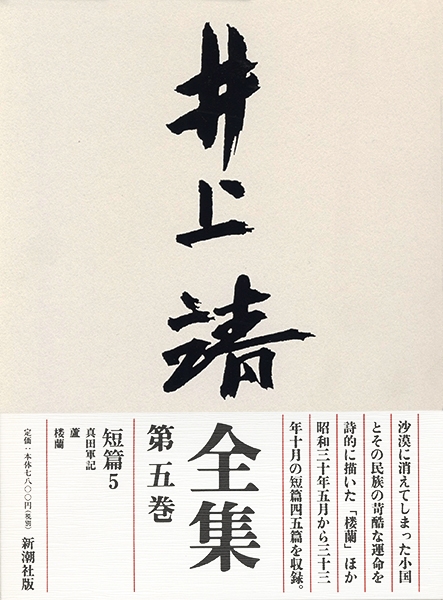 井上靖
全集
第五巻
沙漠に消えてしまった小国
とその民族の苛酷な運命を
詩的に描いた「楼蘭」ほか
昭和三十年五月から三十三
年十月の短篇四五篇を収録。
短篇5
真田軍記
蘆
楼蘭
新潮社版
定価：本体七八〇〇円（税別）